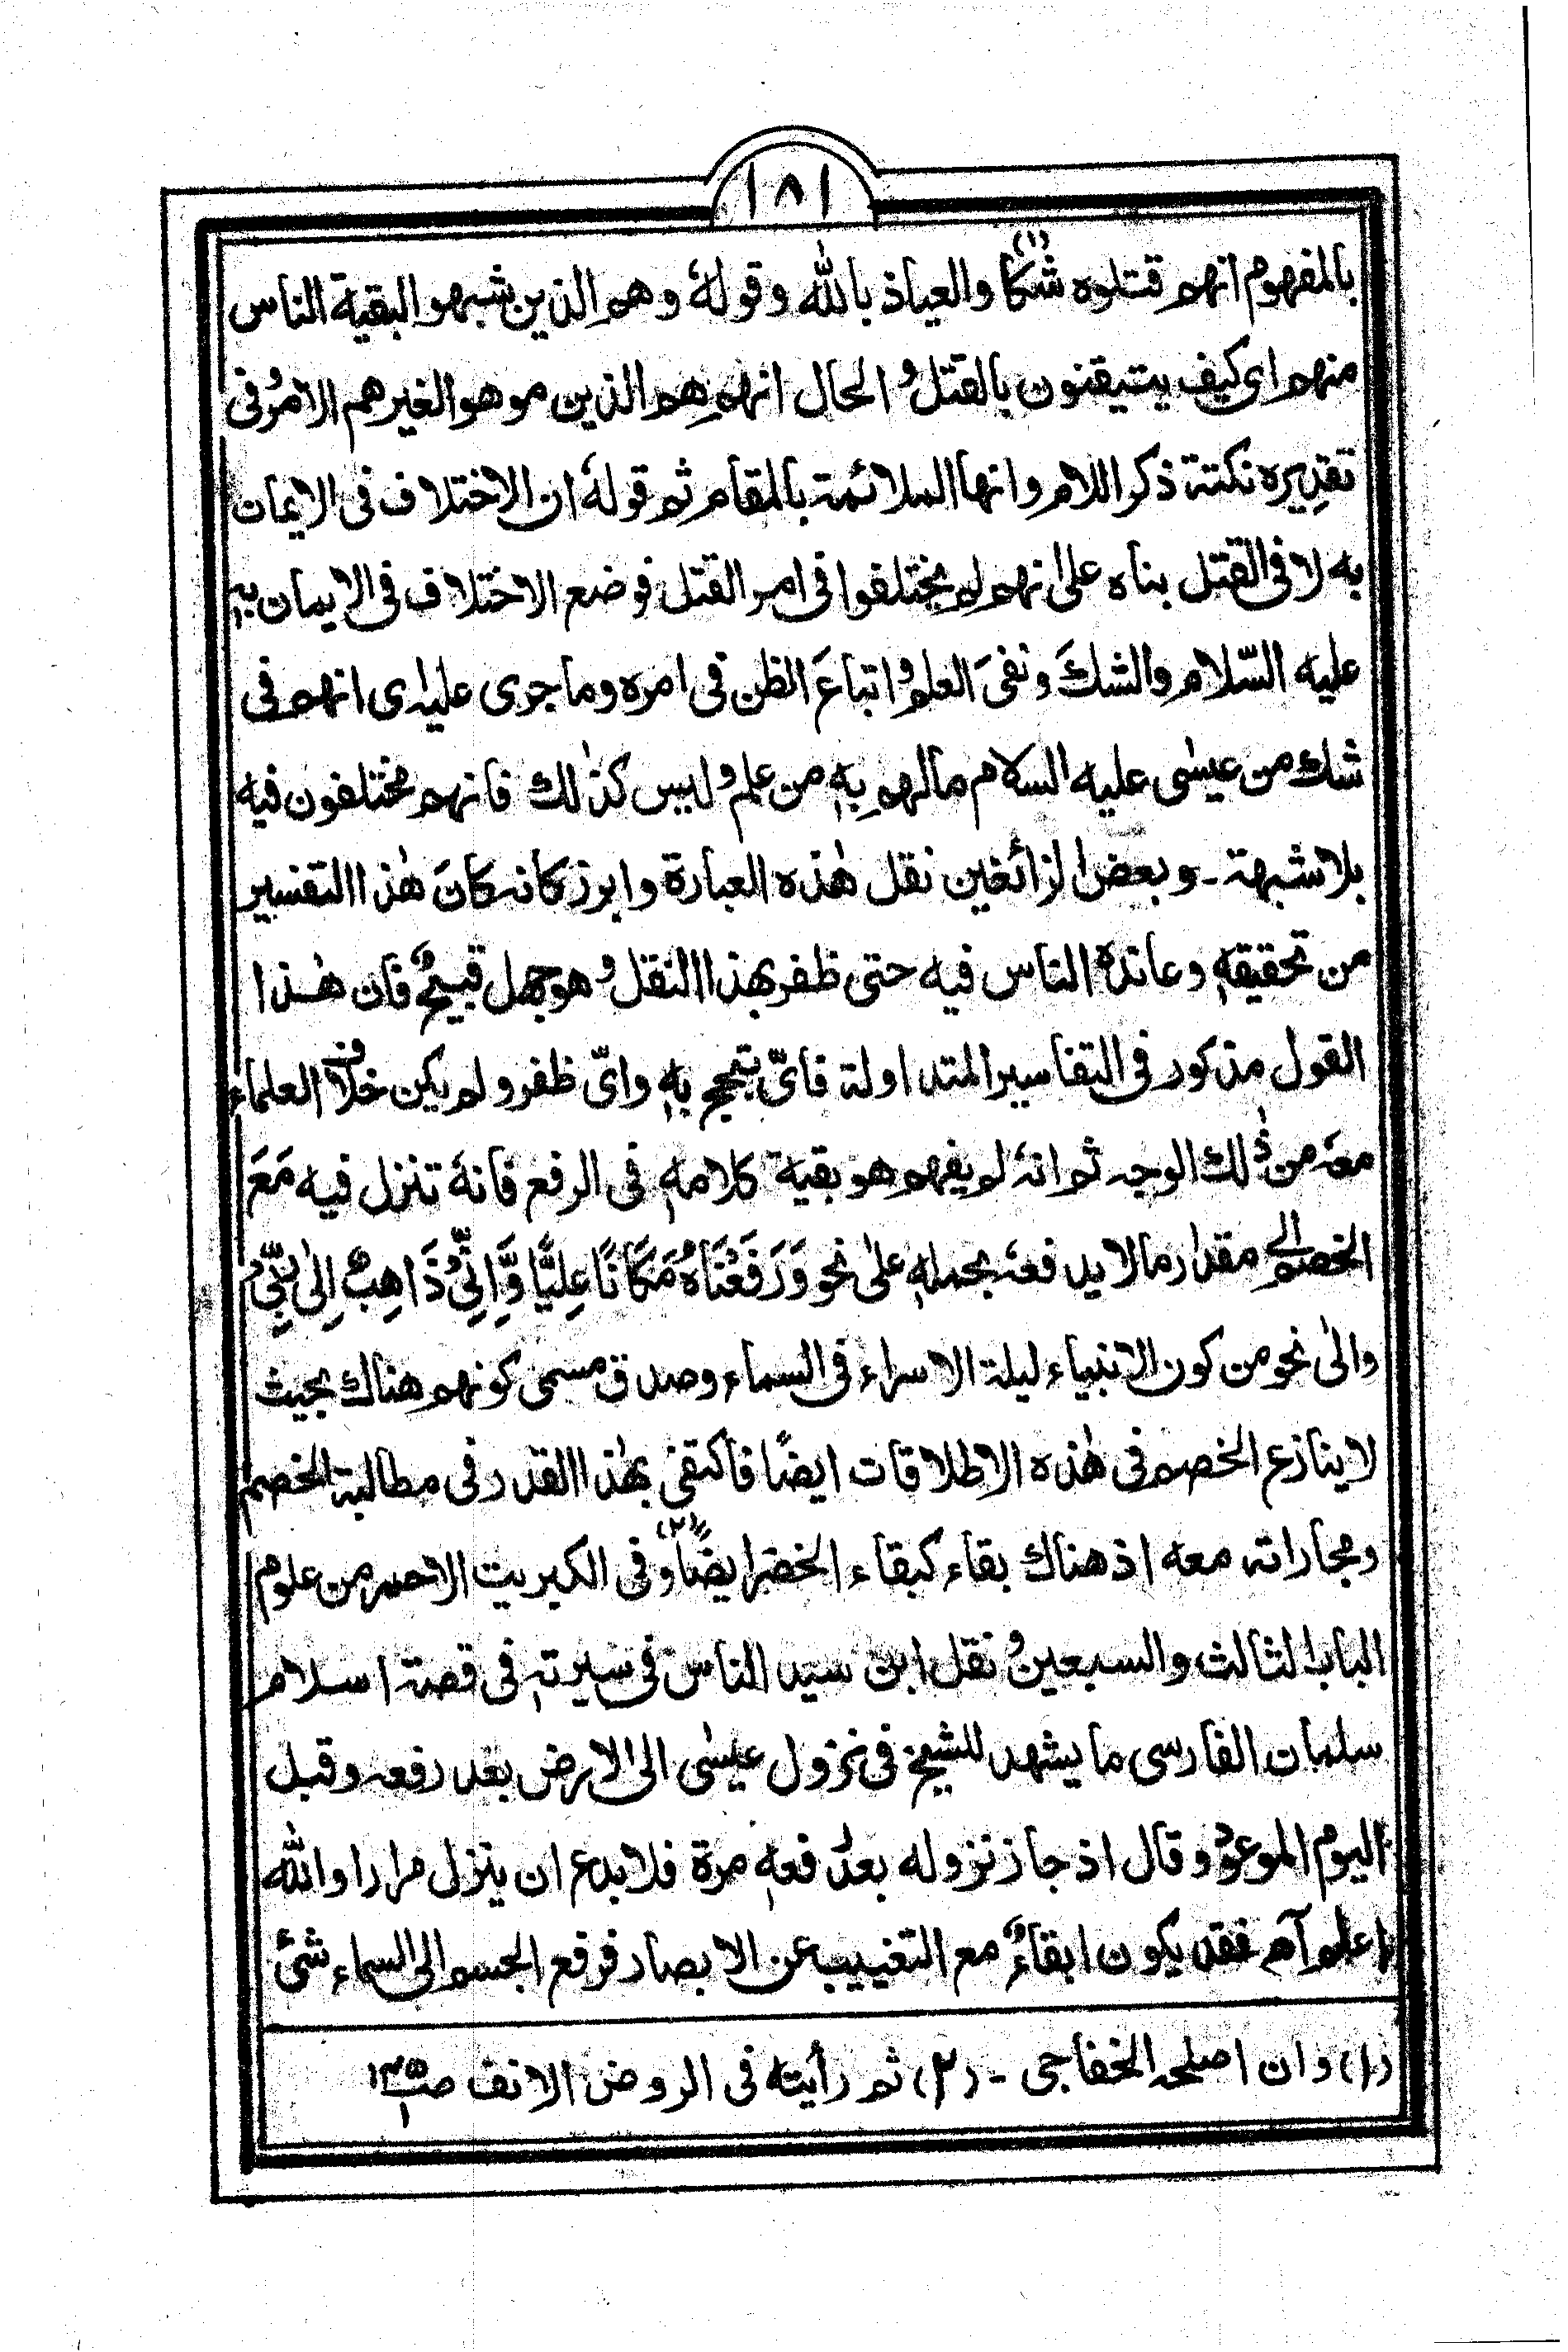 ١٨١
بالمفهوم انهم قتلوه شكا(١) والعياذ بالله وقولهٗ وهم الذين شبهوا لبقية الناس
منهم اى كيف يتيقنون بالقتل و الحال انهم هم الذين موهوا لغيرهم الامرُ و فى
تقديره نكتة ذكر اللام وانها الملائمة بالمقام ثم قولهٗ ان الاختلاف فى الايمان
به لا فى القتل بناه على انهم لم يختلفوا فى امر القتل فوضع الاختلاف فى الايمان به
عليه السّلام والشكَ ونفىَ العلم و اتباعَ الظن فى امره وما جرى عليه اى انهم فى
شك من عيسٰى عليه السلام مالهم بهٖ من علم و ليس كذٰلك فانهم مختلفون فيه
بلا شبهة ـ وبعض الزائغين نقل هٰذه العبارة وابرز كانه كانَ هٰذا التفسير
من تحقيقهٖ وعانده الناس فيه حتى ظفر بهذا النقل و هو جهل قبيحٌ فان هٰذا
القول مذكور فى التفاسير المتداولة فاىّ تبجح بهٖ واىّ ظفر ولم يكن خلاف العلماء
معهٗ من ذٰلك الوجه ثم انهٗ لم يفهم هو بقية كلامهٖ فى الرفع فانهٗ تنزل فيه مَعَ
الخصم الى مقدار مالا يدفعهٗ بحملهٖ علٰى نحو وَرَفَعْنَاهُ مَكَانًا عَلِيًّا وَّاِنِّىْ ذَاهِبٌ اِلٰى رَبِّىْ
والٰى نحو من كون الانبياء ليلة الاسراء فى السماء وصدق مسمى كونهم هناك بحيث
لا ينازع الخصم فى هٰذه الاطلاقات ايضًا فاكتفى بهٰذا القدر فى مطالبة الخصم
ومجاراته معه اذ هناك بقاء كبقاء الخضر ايضًا(٢) وفى الكبريت الاحمر من علوم
الباب الثالث والسبعين و نقل ابن سيد الناس فى سيرتهٖ فى قصة اسلام
سلمان الفارسى ما يشهد للشيخ فى نزول عيسٰى الى الارض بعد رفعه وقبل
اليوم الموعود وقال اذ جاز نزوله بعد رفعهٖ مرة فلا بدع ان ينزل مرارا والله
اعلم آه فقد يكون ابقاءٌ مع التغييب عن الابصار فرفع الجسم الى السماء شئ
(١) وان اصلحه الخفاجى ـ (٢) ثم رأيته فى الروض الانف صـ١٣٥ ١